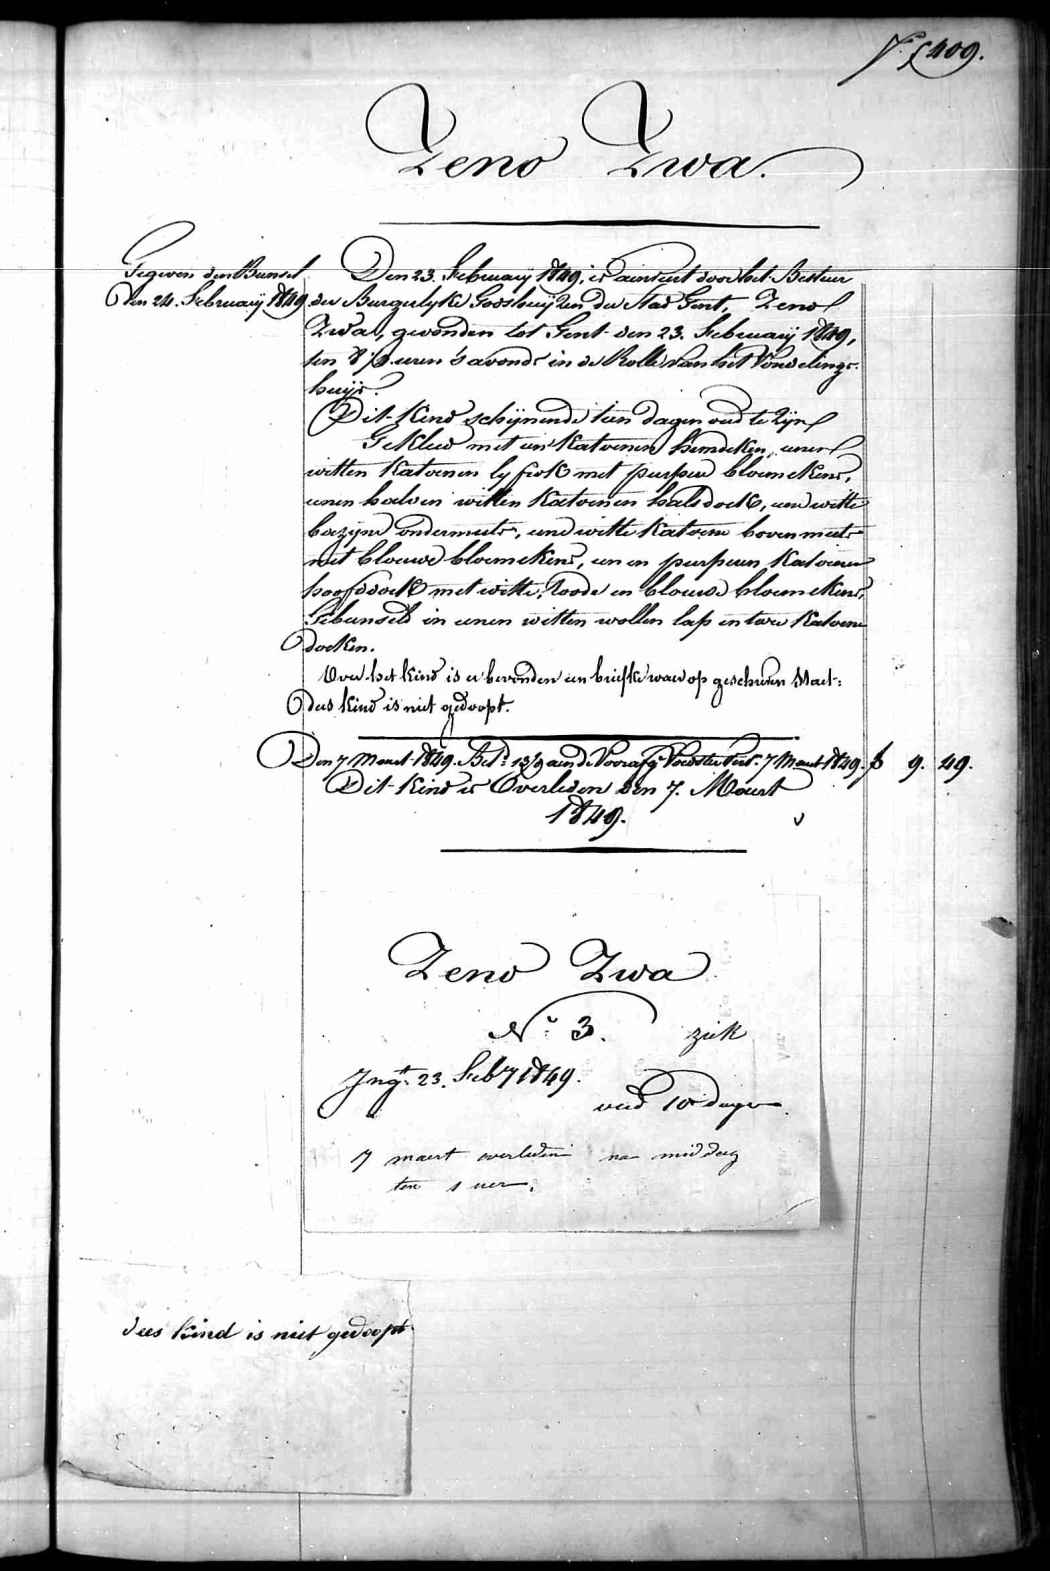 409.
Zeno Zwa.
Gegeven den Bunsel
Den 24. February 1849
Den 23. February 1849, is aenveirt door het Bestuer
der Burgerlyke Godshuijzen der Stad Gent, Zeno
Zwa, gevonden tot Gent den 23. February 1849,
ten 8 uren 's avonds in de Rolle van het Vondelings-
huijs.
Dit Kind schijnende tien dagen oud te Zijn
Gekleed met een Katoenen hemdeken, eenen
witten Katoenen lyfrok met purper bloemekens,
eenen halven witten Katoenen halsdoek, eene witte
bazijne ondermuts, eene witte Katoene bovenmuts
met blouwe bloemekens, eenen purperen Katoenen
hoofddoek met witte, roode en blouwe bloemekens,
Gebunseld in eenen witten wollen lap en twee Katoene
doeken.
Over het kind is er bevonden een briefke waer op geschreven staet:
dees kind is niet gedoopt.
Den 7 Maert 1849. Bet. 13/9 aen de Voorafg. Voedster tot 7 Maert 1849. f 9. 49.
Dit Kind is Overleden den 7. Maert
1849.
Zeno Zwa
N.º 3. ziek
Ingt. 23. Feb.y 1849.
oud 10 dagen
7 maert overleden na middag
ten 1 uer.
dees kind is niet gedoopt